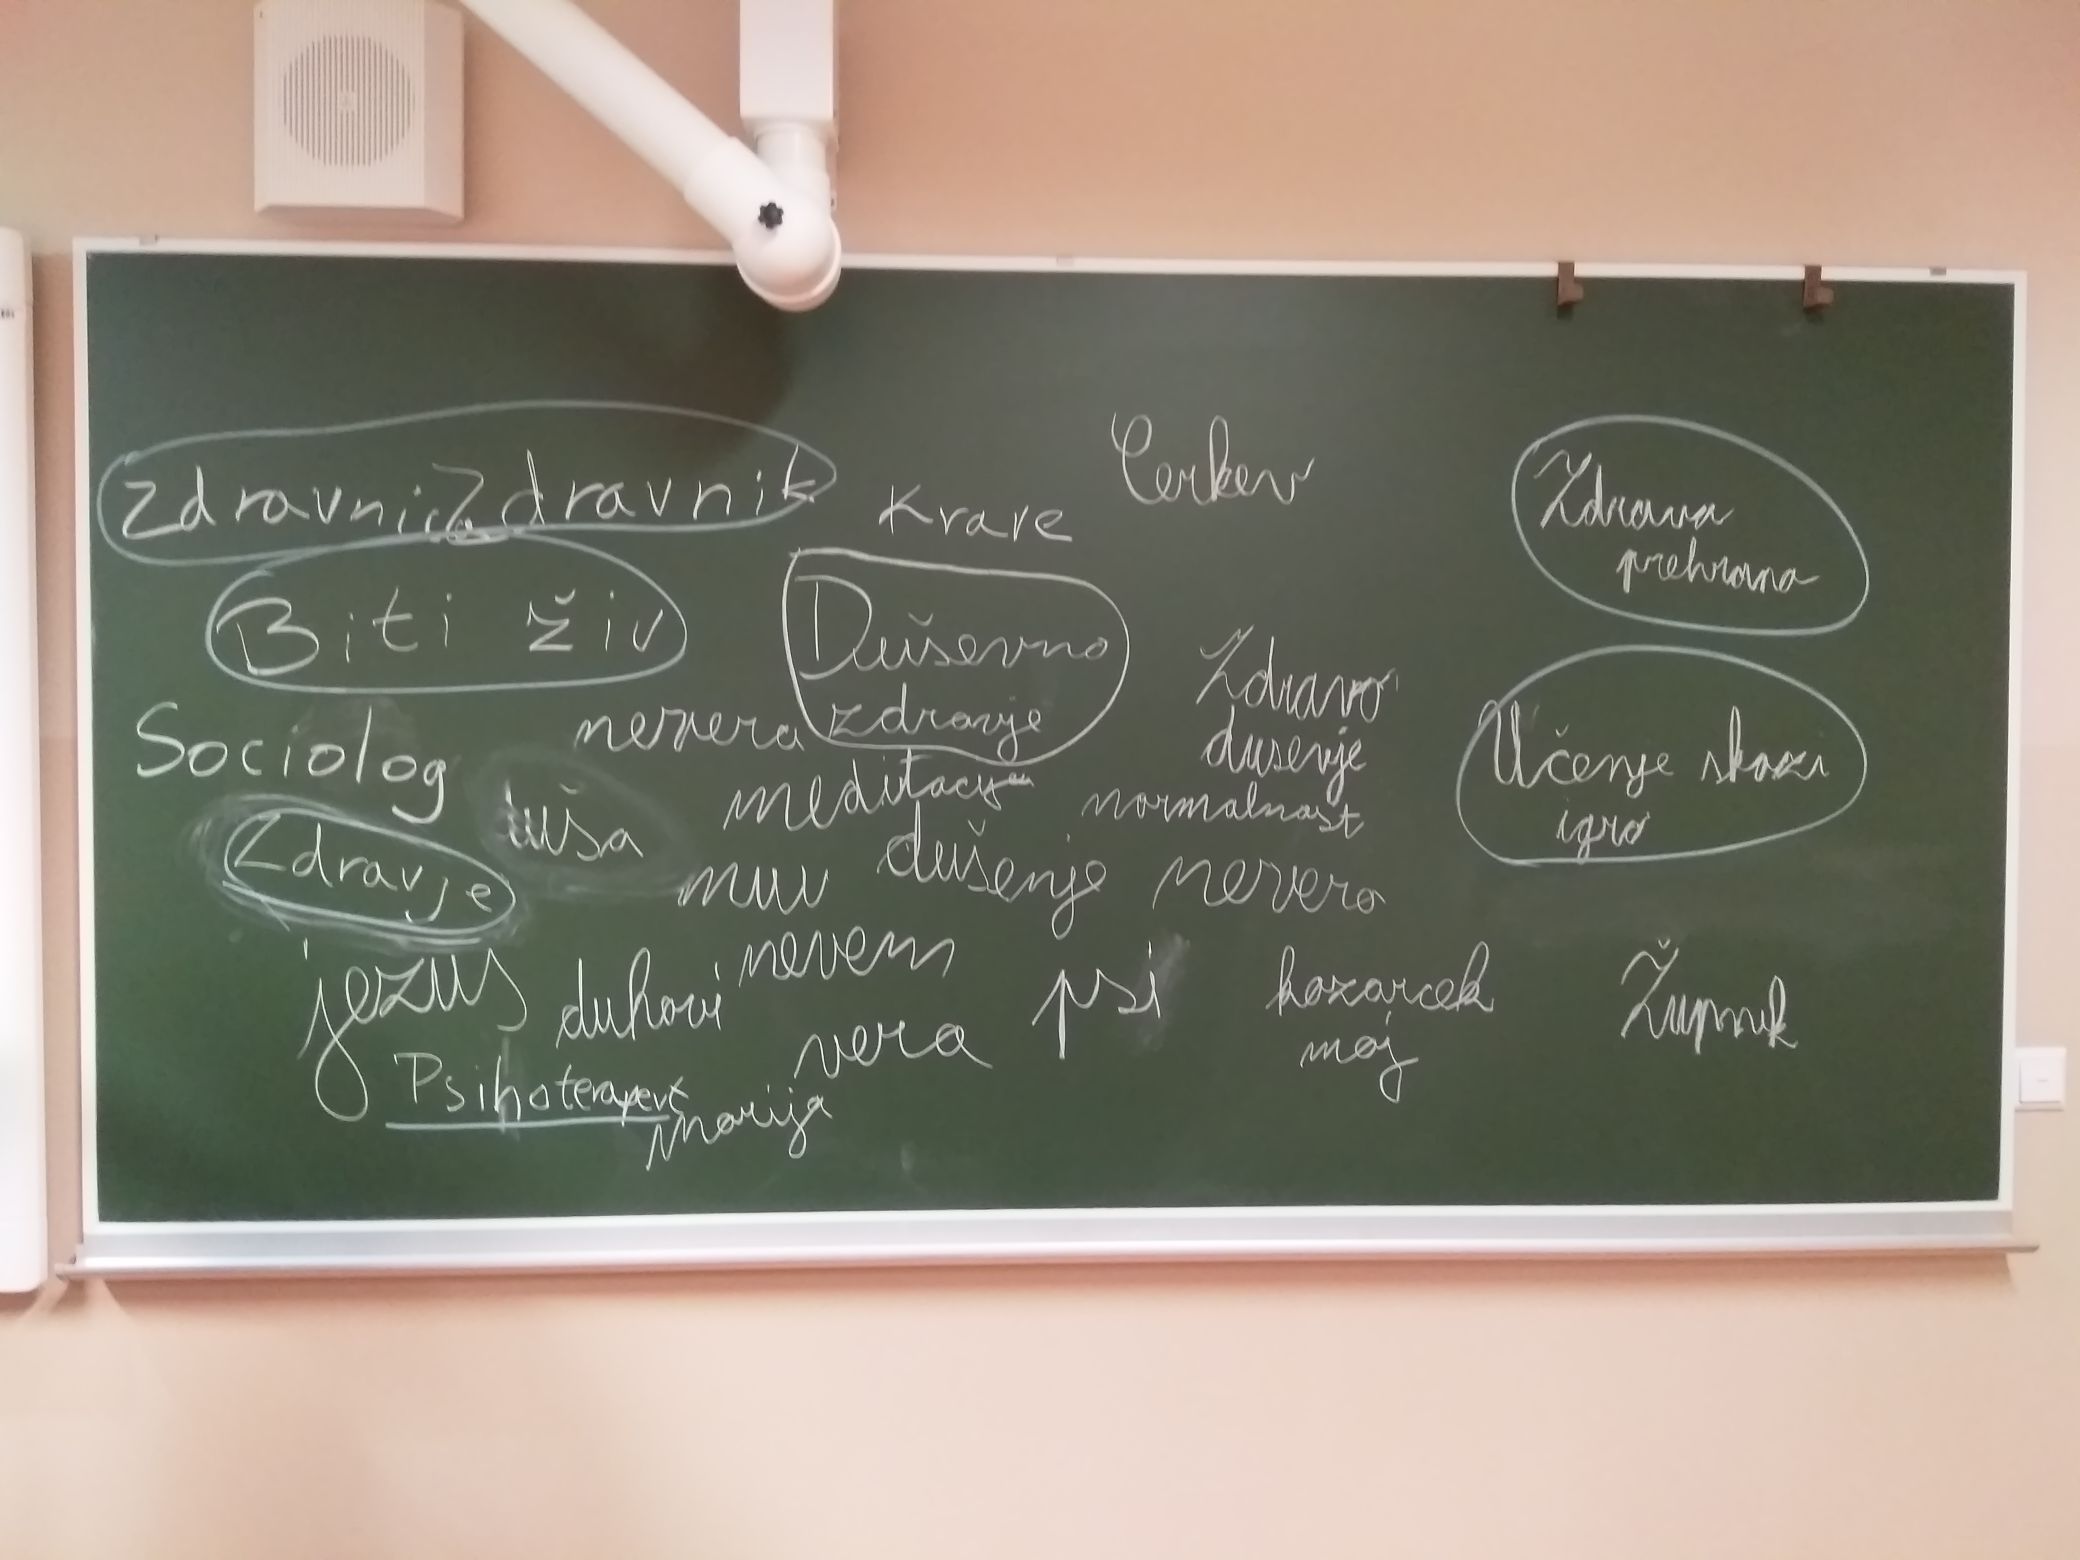 Zdravnica Zdravnik
Krave
Cerkev
Zdrava
prehrana
Biti živ
Duševno
zdravje
Zdravo
dusevje
Učenje skozi
igro
Sociolog
nevera
duša
meditacija
normalnost
Zdravje
muv
dušenje
nevera
jezus
duhovi
nevem
vera
psi
kozarcek
moj
Župnik
Psihoterapevt
marija